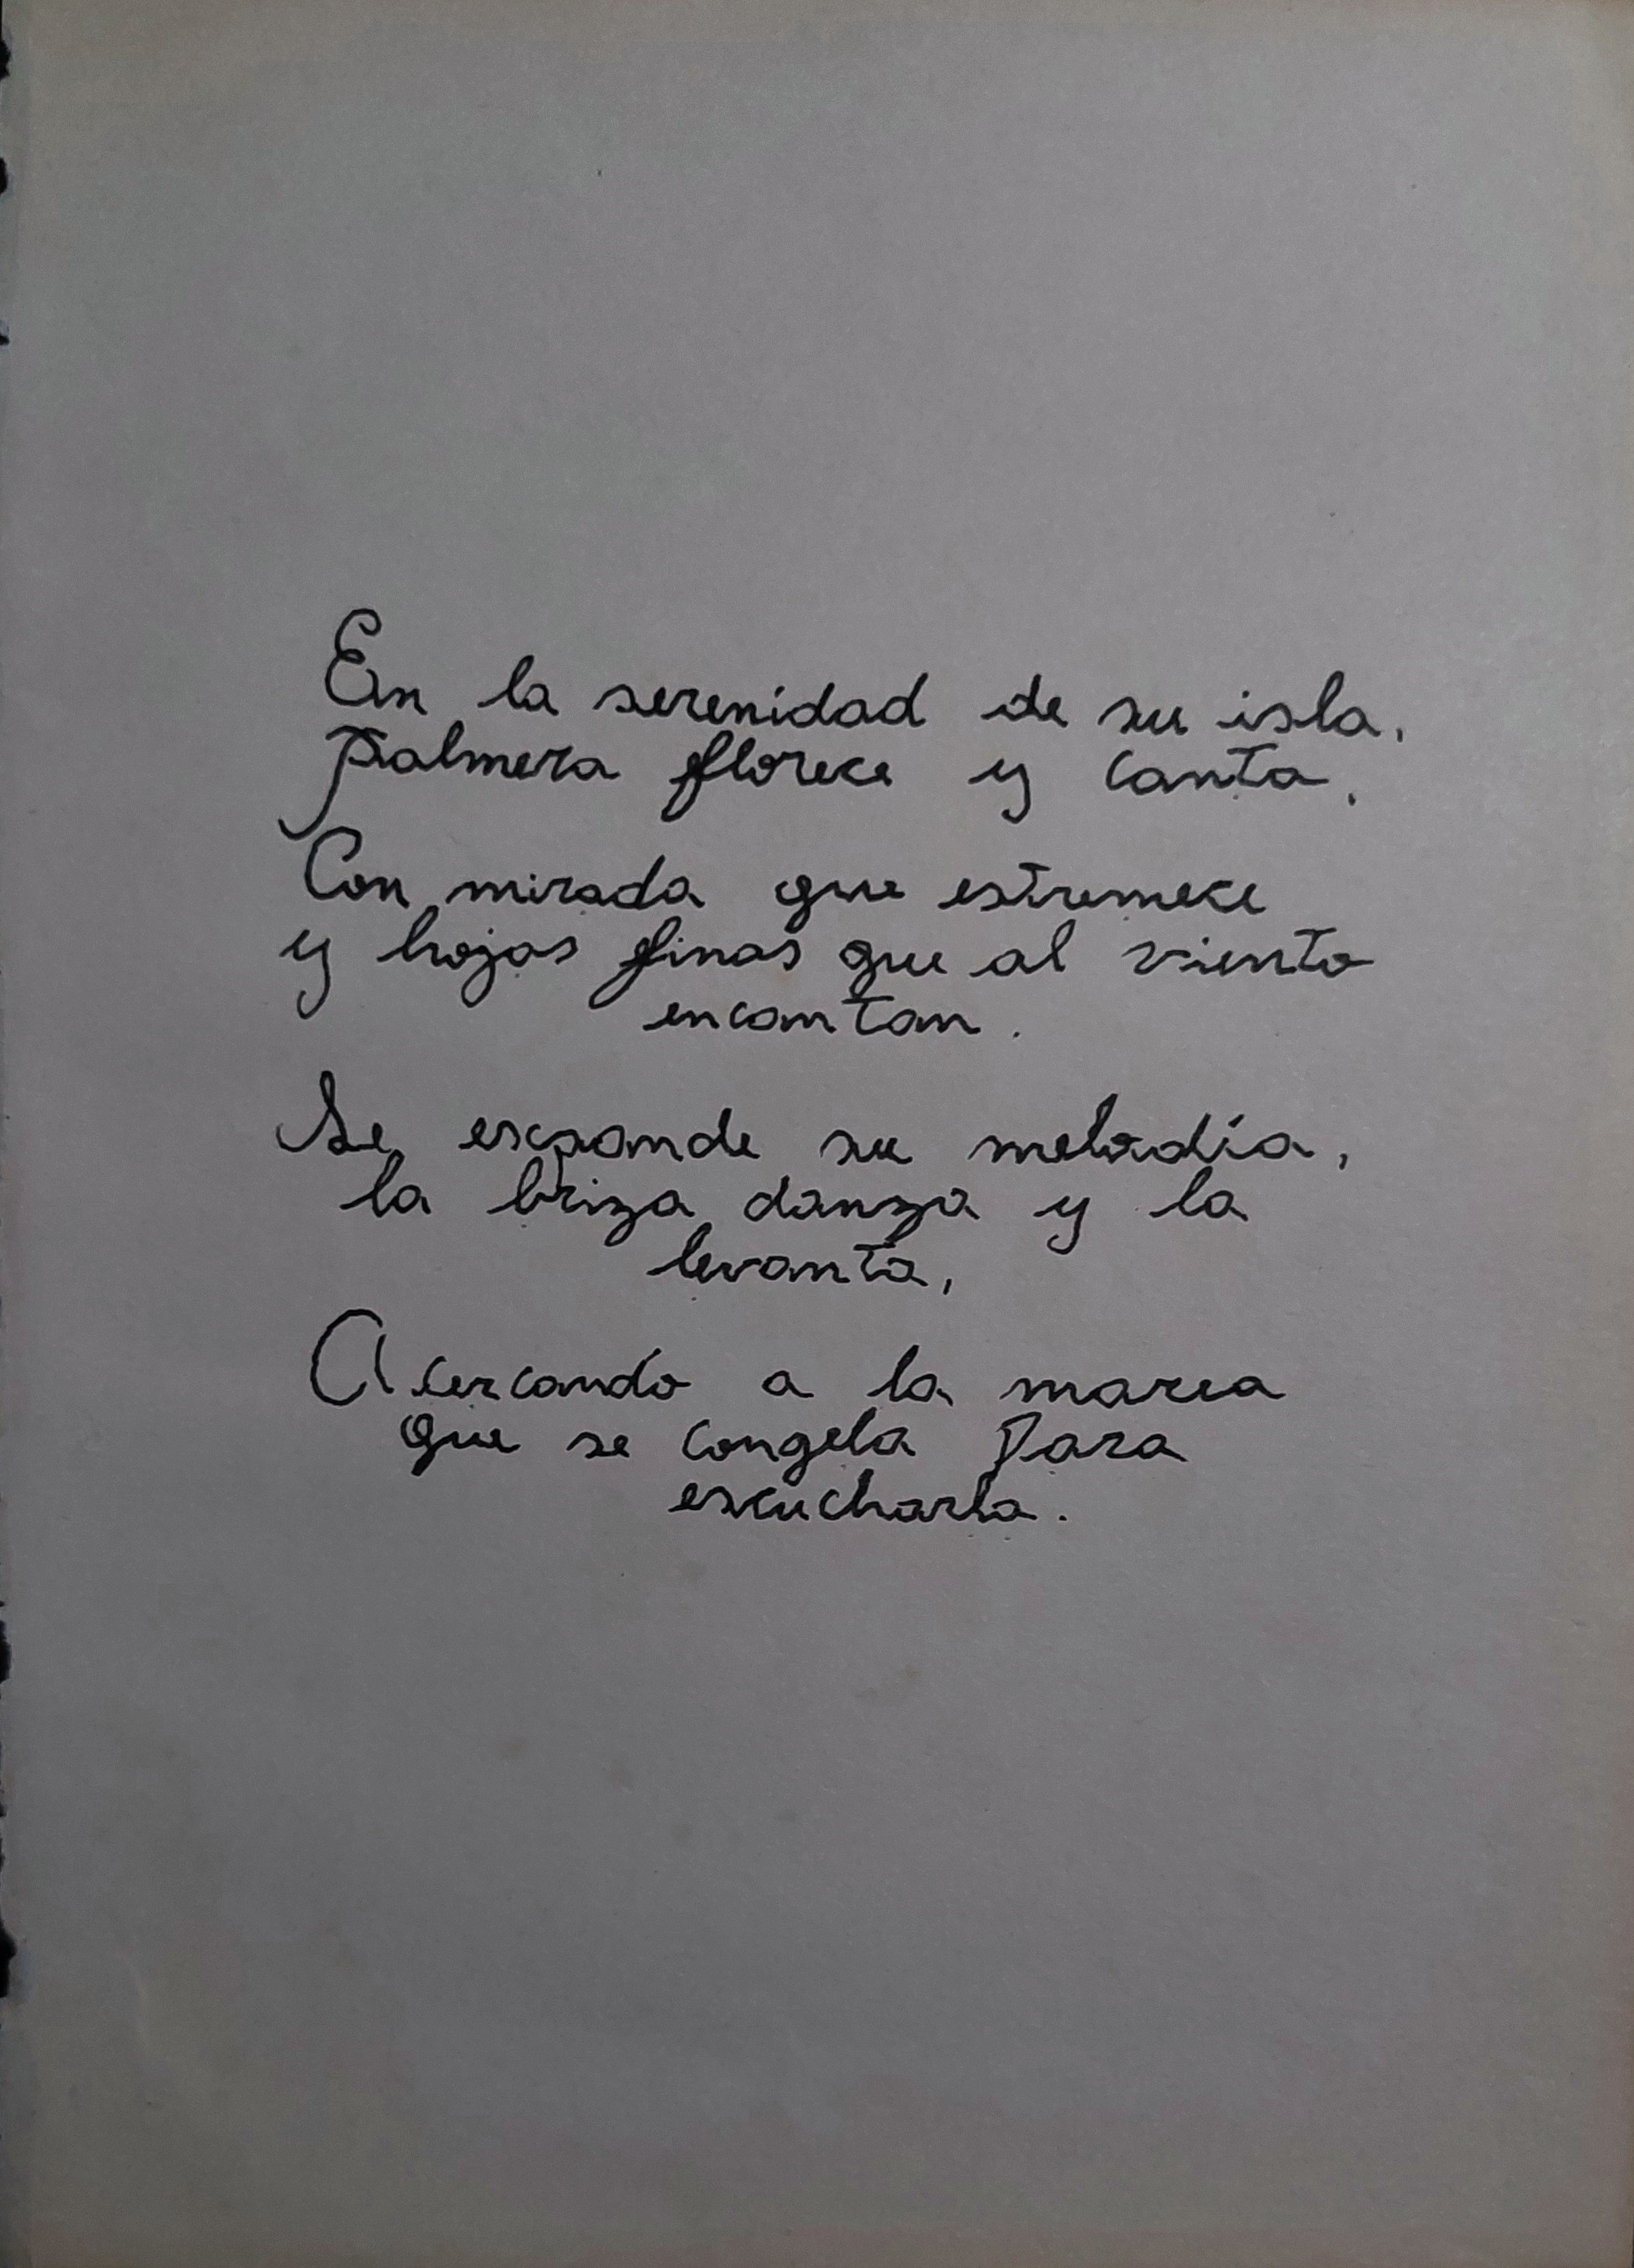 En la serenidad de su isla,
Palmera florece y canta,
Con mirada que estremece
y hojas finas que al viento
encantan.
Se expande su melodía,
la briza danza y la
levanta,
Acercando a la marea
que se congela para
escucharla.